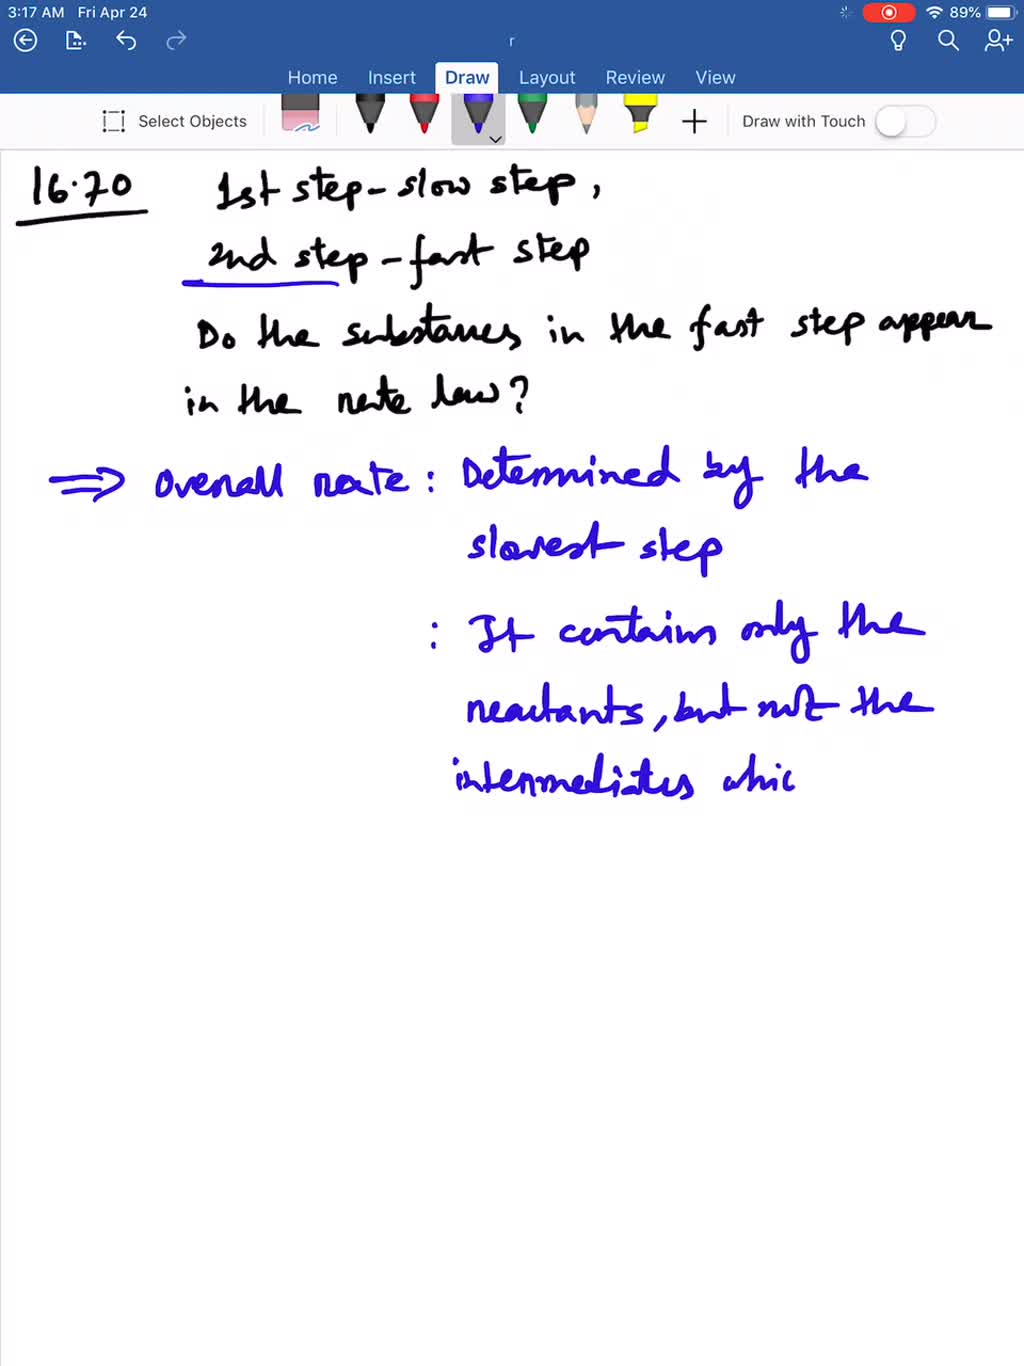 3:17 AM Fri Apr 24 89%
r
Home Insert Draw Layout Review View
Select Objects Draw with Touch
16.70 1st step - slow step,
2nd step - fast step
Do the substances in the fast step appear
in the rate law?
⇒ Overall rate : Determined by the
slowest step
: It contains only the
reactants, but not the
intermediates whic